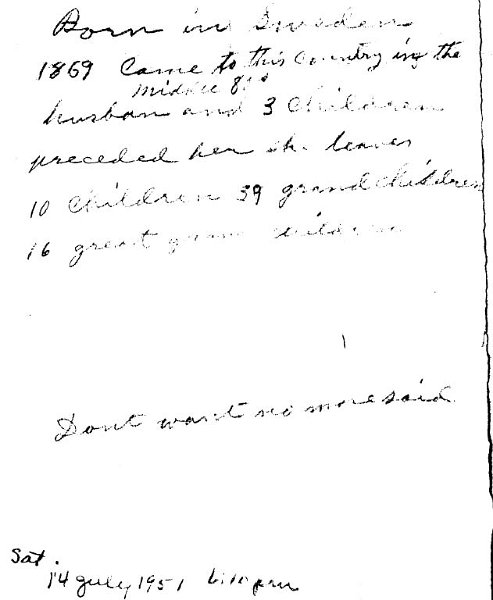 Born in Sweden
1869 Came to this Country in the
middle 80s
husban and 3 Children
preceded her she leaves
10 Children 39 grandchildren
16 great grand children
Dont want no more said
Sat
14 July 1951 6:10 pm